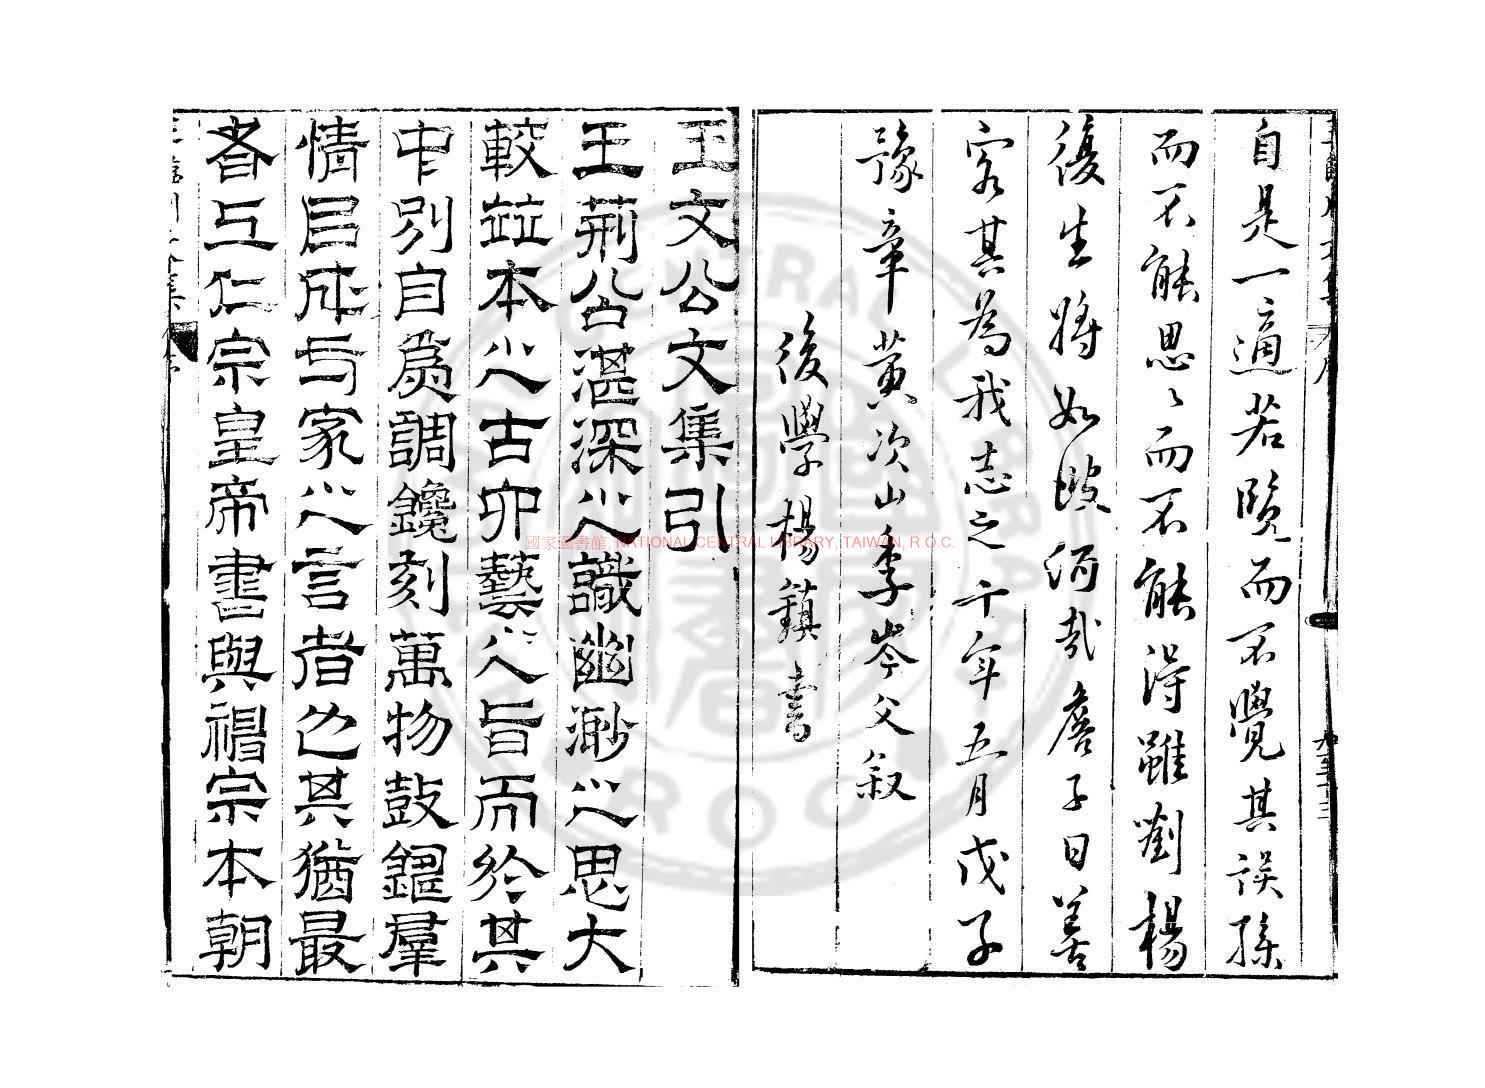 自是一適若覽而不覺其誤孫
而不能思〻而不能得雖劉楊
復生將如彼何哉詹子曰善
客其為我志之千年五月戊子
豫章黃次山季岑父叙
後學楊鎮書
王文公文集引
王荊公湛深之識幽渺之思大
較竝本之古六藝之旨而於其
中別自為調鑱刻萬物鼓鑄羣
情以成一家之言者也其猶最
者上仁宗皇帝書與神宗本朝
國家圖書館, NATIONAL CENTRAL LIBRARY, TAIWAN, R.O.C.